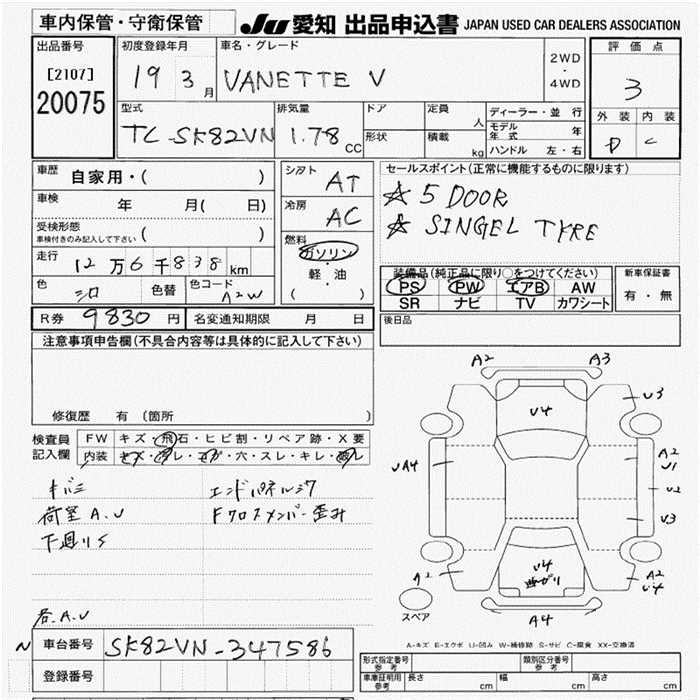 車内保管・守衛保管
JU 愛知 出品申込書 JAPAN USED CAR DEALERS ASSOCIATION
出品番号
[2107]
20075
初度登録年月
19 3月
車名・グレード
VANETTE V
2WD
・
4WD
評価点
3
外装 内装
D C
型式
TC-SK82VN
排気量
1.78 CC
ドア
形状
定員 人
積載 kg
ディーラー・並行
モデル年式 年
ハンドル 左・右
車歴 自家用・( )
車検 年 月( 日)
受検形態
車検付きのみ記入して下さい ( )
走行 12万6千838 km
色 シロ 色替 色コード A2W
シフト AT
冷房 AC
燃料
ガソリン
・
軽・油
( )
セールスポイント(正常に機能するものに限ります)
☆ 5 DOOR
☆ SINGEL TYRE
装備品(純正品に限り○をつけてください)
PS PW エアB AW
SR ナビ TV カワシート
新車保証書
有・無
R券 9830円 名変通知期限 月 日
後日品
注意事項申告欄(不具合内容等は具体的に記入して下さい)
修復歴 有(箇所 )
検査員
記入欄
FW キズ・飛石・ヒビ割・リペア跡・X要
内装
キバミ
荷室A.U
下廻りS
エンドパネルシワ
Fクロスメンバー歪み
A.U
A2 A3
U4
U3
UA4
A2
U1
U2
U3
A2
U4
曲がり
A2
U4
A4
スペア
A-キズ E-エクボ U-凹み W-補修跡 S-サビ C-腐食 XX-交換済
N
車台番号 SK82VN-347586
登録番号
形式指定番号
参考
類別区分番号
参考
車庫証明用
参考
長さ cm 幅 cm 高さ cm